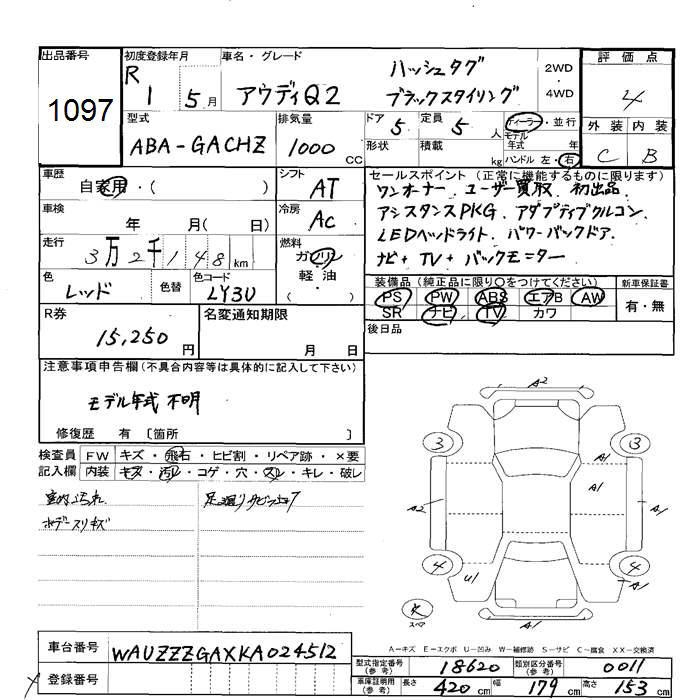 出品番号 初度登録年月 車名・グレード 評価点
1097 R1 5月 アウディQ2 ハッシュタグ ブラックスタイリング 2WD 4WD 4
型式 排気量 ドア 定員 ディーラー・並行 外装 内装
ABA-GACHZ 1000 CC 5 5人 モデル年式 年 C B
形状 積載 kg ハンドル 左・右
車歴 シフト セールスポイント(正常に機能するものに限ります)
自家用・( ) AT ワンオーナー、ユーザー買取、初出品
車検 冷房 アシスタンスPKG、アダプティブクルコン、
年 月( 日) AC LEDヘッドライト、パワーバックドア、
走行 燃料 ナビ+TV+バックモニター
3万2千148km ガソリン
色 色替 色コード 軽・油 装備品(純正品に限り○をつけてください) 新車保証書
レッド LY3U ( ) PS PW ABS エアB AW 有・無
SR ナビ TV カワ
R券 名変通知期限 後日品
15,250円 月 日
注意事項申告欄(不具合内容等は具体的に記入して下さい)
モデル年式 不明
修復歴 有 〔箇所 〕
検査員 FW キズ・飛石・ヒビ割・リペア跡・×要
記入欄 内装 キズ・汚れ・コゲ・穴・スレ・キレ・破レ
室内汚れ
ボデースリキズ
A2
3 3
A1
A1
A2 A1
4 4
U1 A1
スペア
A1
A-キズ E-エクボ U-凹み W-補修跡 S-サビ C-腐食 XX-交換済
車台番号 WAUZZZGAXKA024512
登録番号
型式指定番号(参考) 18620 類別区分番号(参考) 0011
車庫証明用(参考) 長さ 420cm 幅 179cm 高さ 153cm